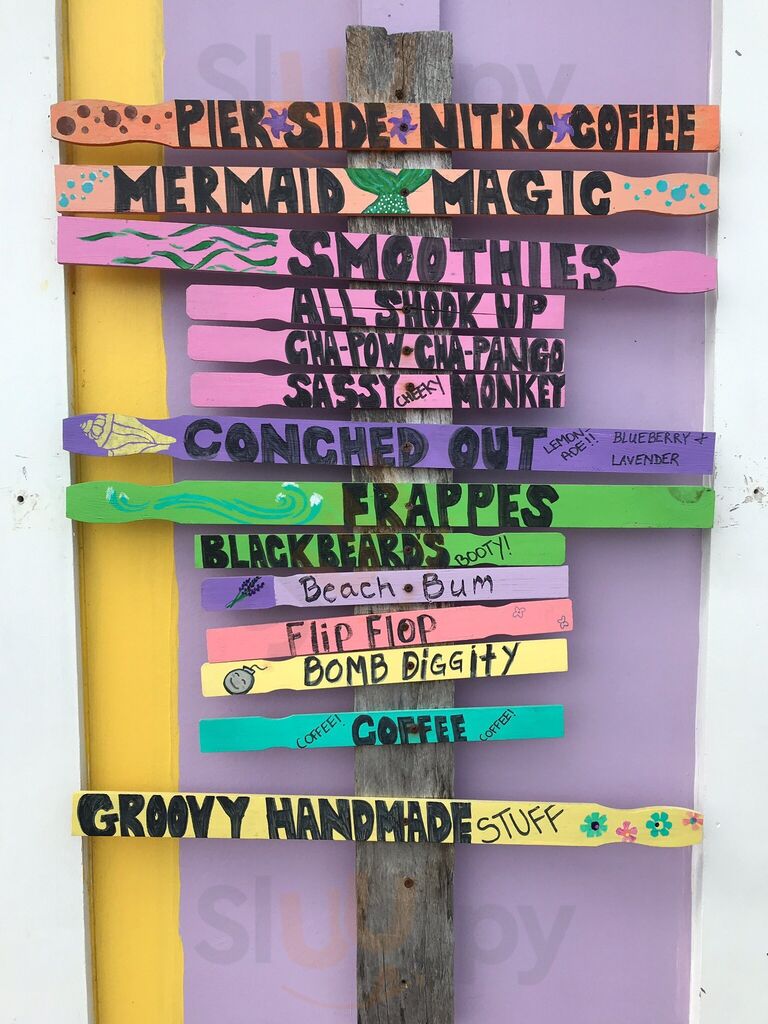 PIER SIDE NITRO COFFEE
MERMAID MAGIC
SMOOTHIES
ALL SHOOK UP
CHA-POW CHA-PANGO
SASSY CHEEKY MONKEY
CONCHED OUT LEMON-ADE!! BLUEBERRY + LAVENDER
FRAPPES
BLACKBEARD'S BOOTY!
Beach Bum
Flip Flop
BOMB DiGGiTY
COFFEE! COFFEE COFFEE!
GROOVY HANDMADE STUFF
Sluurpy
Sluurpy